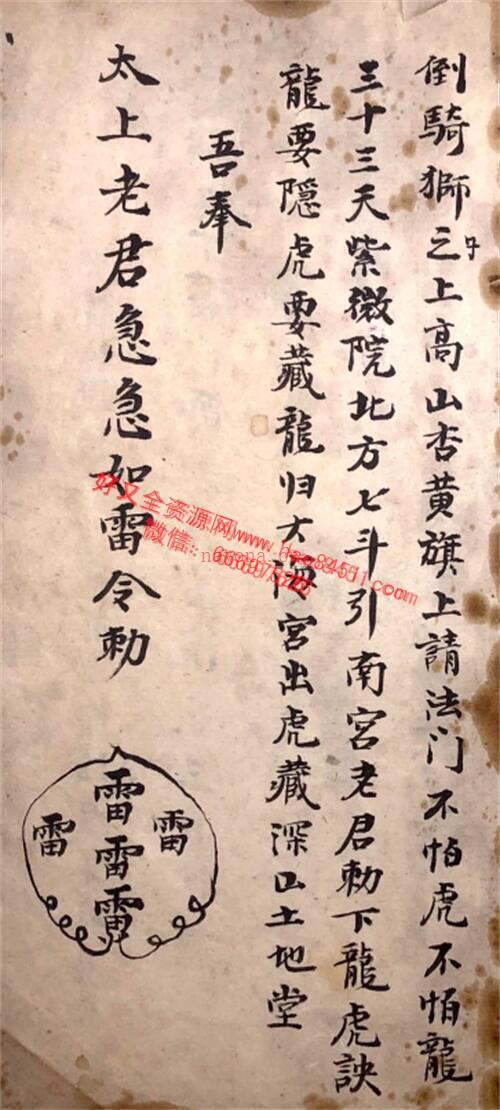 倒騎獅之子上高山杏黄旗上請法门不怕虎不怕龍
三十三天紫微院北方七斗引南宫老君勅下龍虎訣
龍要隱虎要藏龍归大海宫出虎藏深山土地堂
吾奉
太上老君急急如雷令勅
雷
雷雷雷
雷
好又全资源网
微信: